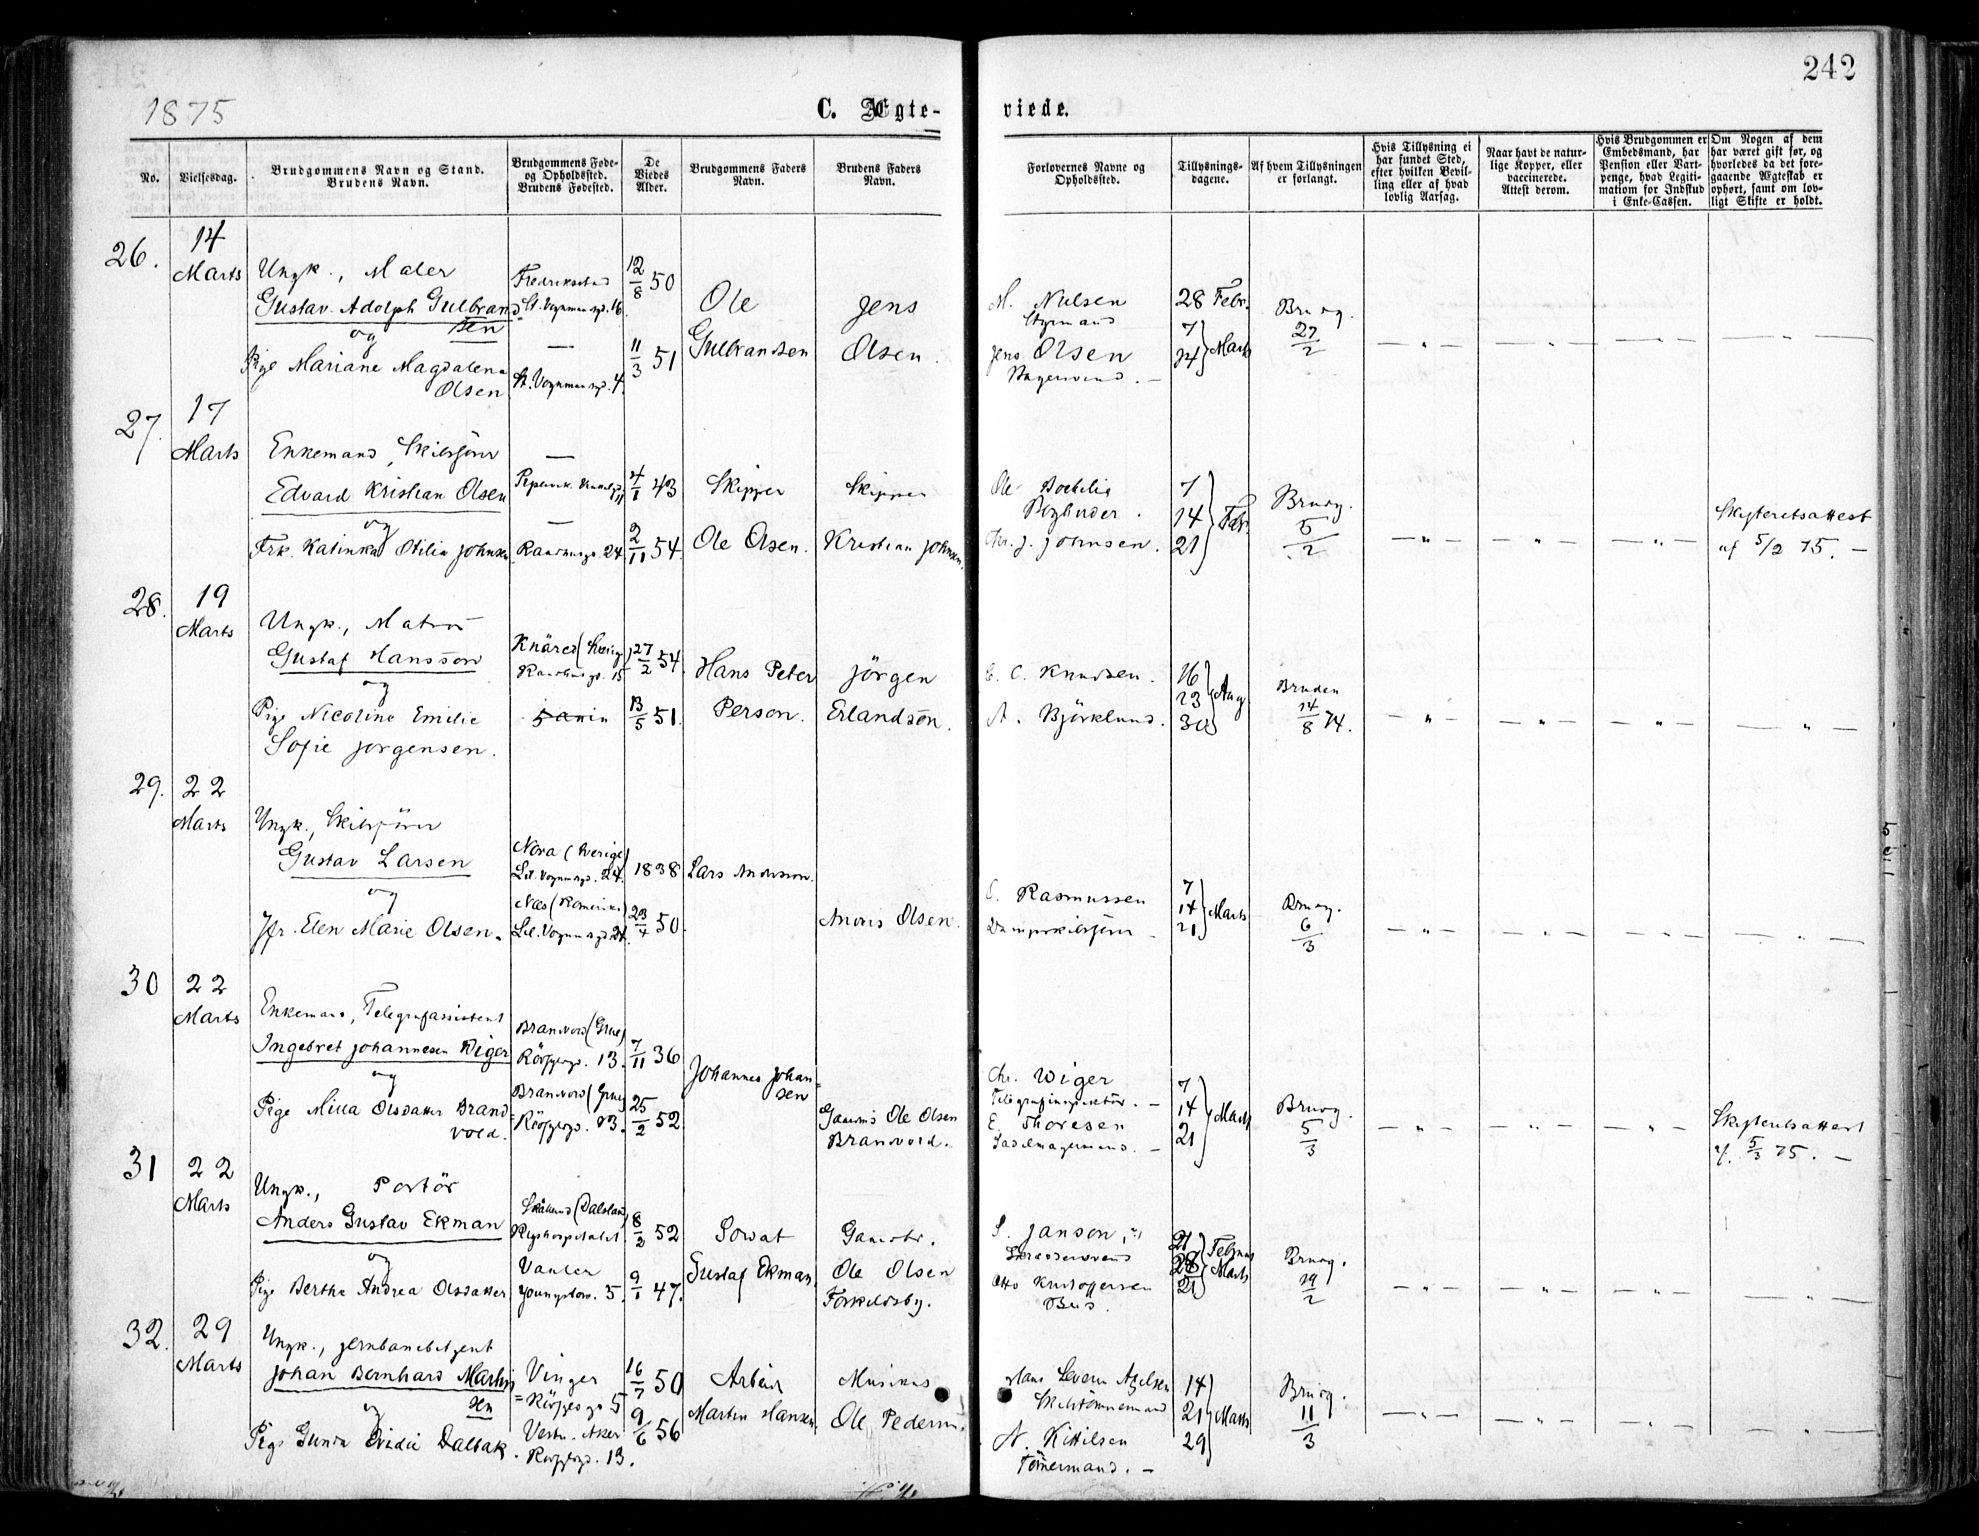 242
1875
C. Ægte-
viede.
No.
Vielsesdag.
Brudgommens Navn og Stand.
Brudens Navn.
Brudgommens Føde-
og Opholdssted.
Brudens Fødested.
De
Viedes
Alder.
Brudgommens Faders
Navn.
Brudens Faders
Navn.
Forlovernes Navne og
Opholdssted.
Tillysnings-
dagene.
Af hvem Tillysningen
er forlangt.
Hvis Tillysning ei
har fundet Sted,
efter hvilken Bevil-
ling eller af hvad
lovlig Aarsag.
Naar havt de natur-
lige Kopper, eller
vaccinerede.
Attest derom.
Hvis Brudgommen er
Embedsmand, har
Pension eller Vart-
penge, hvad Legiti-
mation for Indskud
i Enke-Cassen.
Om Nogen af dem
har været gift før, og
hvorledes da det fore-
gaaende Ægteskab er
ophørt, samt om lov-
ligt Skifte er holdt.
26.
14
Marts
Ungk., Maler
Gustav Adolph Gulbrand
sen
og
Pige Mariane Magdalena
Olsen
Fredrikstad
St. Vognmandsgd. 16
—
St. Vognmandsgd. 4.
12/8 50
11/3 51
Ole
Gulbrandsen
Jens
Olsen.
M. Nielsen
Styrmand
Jens Olsen
28 Febr.
7
14 } Marts
Brudg.
27/2
27.
17
Marts
Enkemand, Skibsfører
Edvard Kristian Olsen
og
Frk. Katinka Otilia Johnsen
—
4/1 43
2/11 54.
Skipper
Ole Olsen.
Skipper
Kristian Johnsen.
Ole
Chr. J. Johnsen.
7
14
21 } Febr.
Brudg.
5/2
Skifteretsattest
af 5/2 75. —
28.
19
Marts
Ungk., Matros
Gustaf Hansson
og
Pige Nicoline Emilie
Sofie Jørgensen.
Knäred (Sverig)
15
27/2 54.
13/5 51.
Hans Peter
Person.
Jörgen
Erlandson.
C. Knudsen.
A. Björklund.
16
23
30 } Aug
Bruden
14/8 74.
29.
22
Marts
Ungk., Skibsfører
Gustav Larsen
og
Jfr. Elen Marie Olsen.
Nora (Sverige)
Lil. Vognmsgd. 24.
Næs (Romerike)
Lil. Vognmsgd. 24.
1838
23/4 50.
Lars Andersson.
Anders Olsen.
C. Rasmussen
Dampskibsfører
7
14
21 } Marts
Brudg.
6/3
30
22
Marts
Enkemand, Telegrafassistent
Ingebret Johannesen Wiger
og
Pige Milla Olsdatter Brand
vold.
Brandvold (Grue)
13.
Brandvold (Grue)
13.
7/11 36
25/2 52
Johannes Johan-
sen
Gaardms Ole Olsen
Brandvold.
Chr. Wiger
Telegrafinspektør. —
E. Thoresen
Sadelmagermand. —
7
14
21 } Marts
Brudg.
5/3
Skifteretsattest
af 5/3 75. —
31
22
Marts
Ungk., Portör
Anders Gustav Ekman
og
Pige Berthe Andrea Olsdatter
(Dalsland)
Rigshospitalet.
Vanler
Youngstorv. 5.
8/2 52
9/1 47.
Soldat
Gustaf Ekman.
Gaardbr.
Ole Olsen
S. Janson,
Otto Kristoffersen
Bud.
21
28
21
Februar
Marts
Brudg.
19/2
32.
29
Marts
Ungk., Jernbanebetjent
Johan Bernhard Martin
sen
og
Pige Gunda Ovidie Dalbak.
Vinger
5
Vestr. Aker
13.
16/7 50
9/6 56
Arbeider
Martin Hansen.
Musikus
Ole Pedersen.
Hans Severin Axelsen
Skibtømmermand
N. Kittilsen
Tømmermand. —
14
21
29 } Marts
Brudg.
11/3